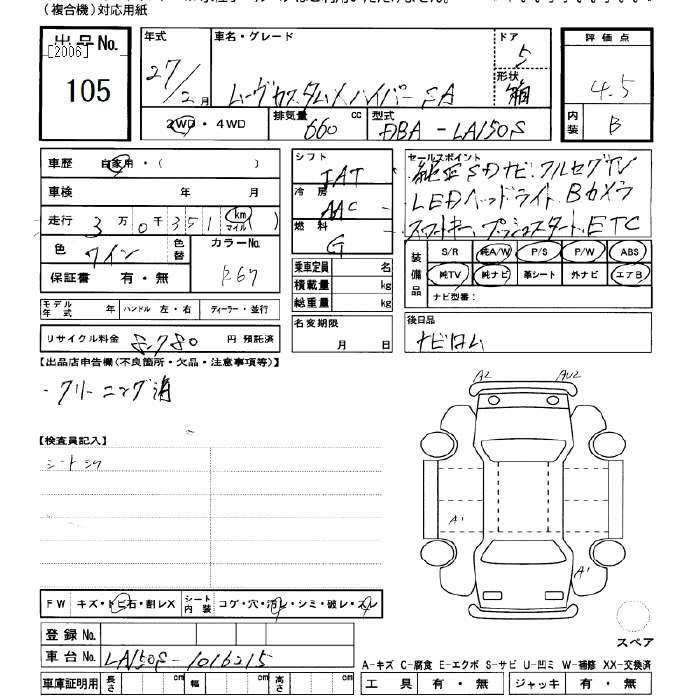 (複合機)対応用紙
出品No.
[2006]
105
年式
27/2月
車名・グレード
ムーヴカスタムXハイパーSA
ドア
5
形状
箱
評価点
4.5
内装
B
2WD・4WD
排気量
660 cc
型式
DBA-LA150S
車歴 自家用・( )
車検 年 月
走行 3万0千351 km マイル ( )
色 ワイン
色替
カラーNo.
R67
保証書 有・無
モデル年式 年 ハンドル 左・右 ディーラー・並行
リサイクル料金 8,780 円 預託済
シフト
IAT
冷房
AAC
燃料
G
乗車定員 名
積載量 kg
総重量 kg
名変期限
月 日
セールスポイント
純正SDナビ、フルセグTV
LEDヘッドライト、Bカメラ
スマートキー、プッシュスタート、ETC
装備品
S/R 純A/W P/S P/W ABS
純TV 純ナビ 革シート 外ナビ エアB
ナビ型番:
後日品
ナビロム
【出品店申告欄(不良箇所・欠品・注意事項等)】
・クリーニング済
【検査員記入】
シートシワ
A2
AU2
A1
A1
スペア
FW キズ・トビ石・割レX
シート内装 コゲ・穴・汚レ・シミ・破レ・スレ
登録No.
車台No. LA150S-1016215
車庫証明用 長さ cm 幅 cm 高さ cm
A-キズ C-腐食 E-エクボ S-サビ U-凹ミ W-補修 XX-交換済
工具 有・無 ジャッキ 有・無